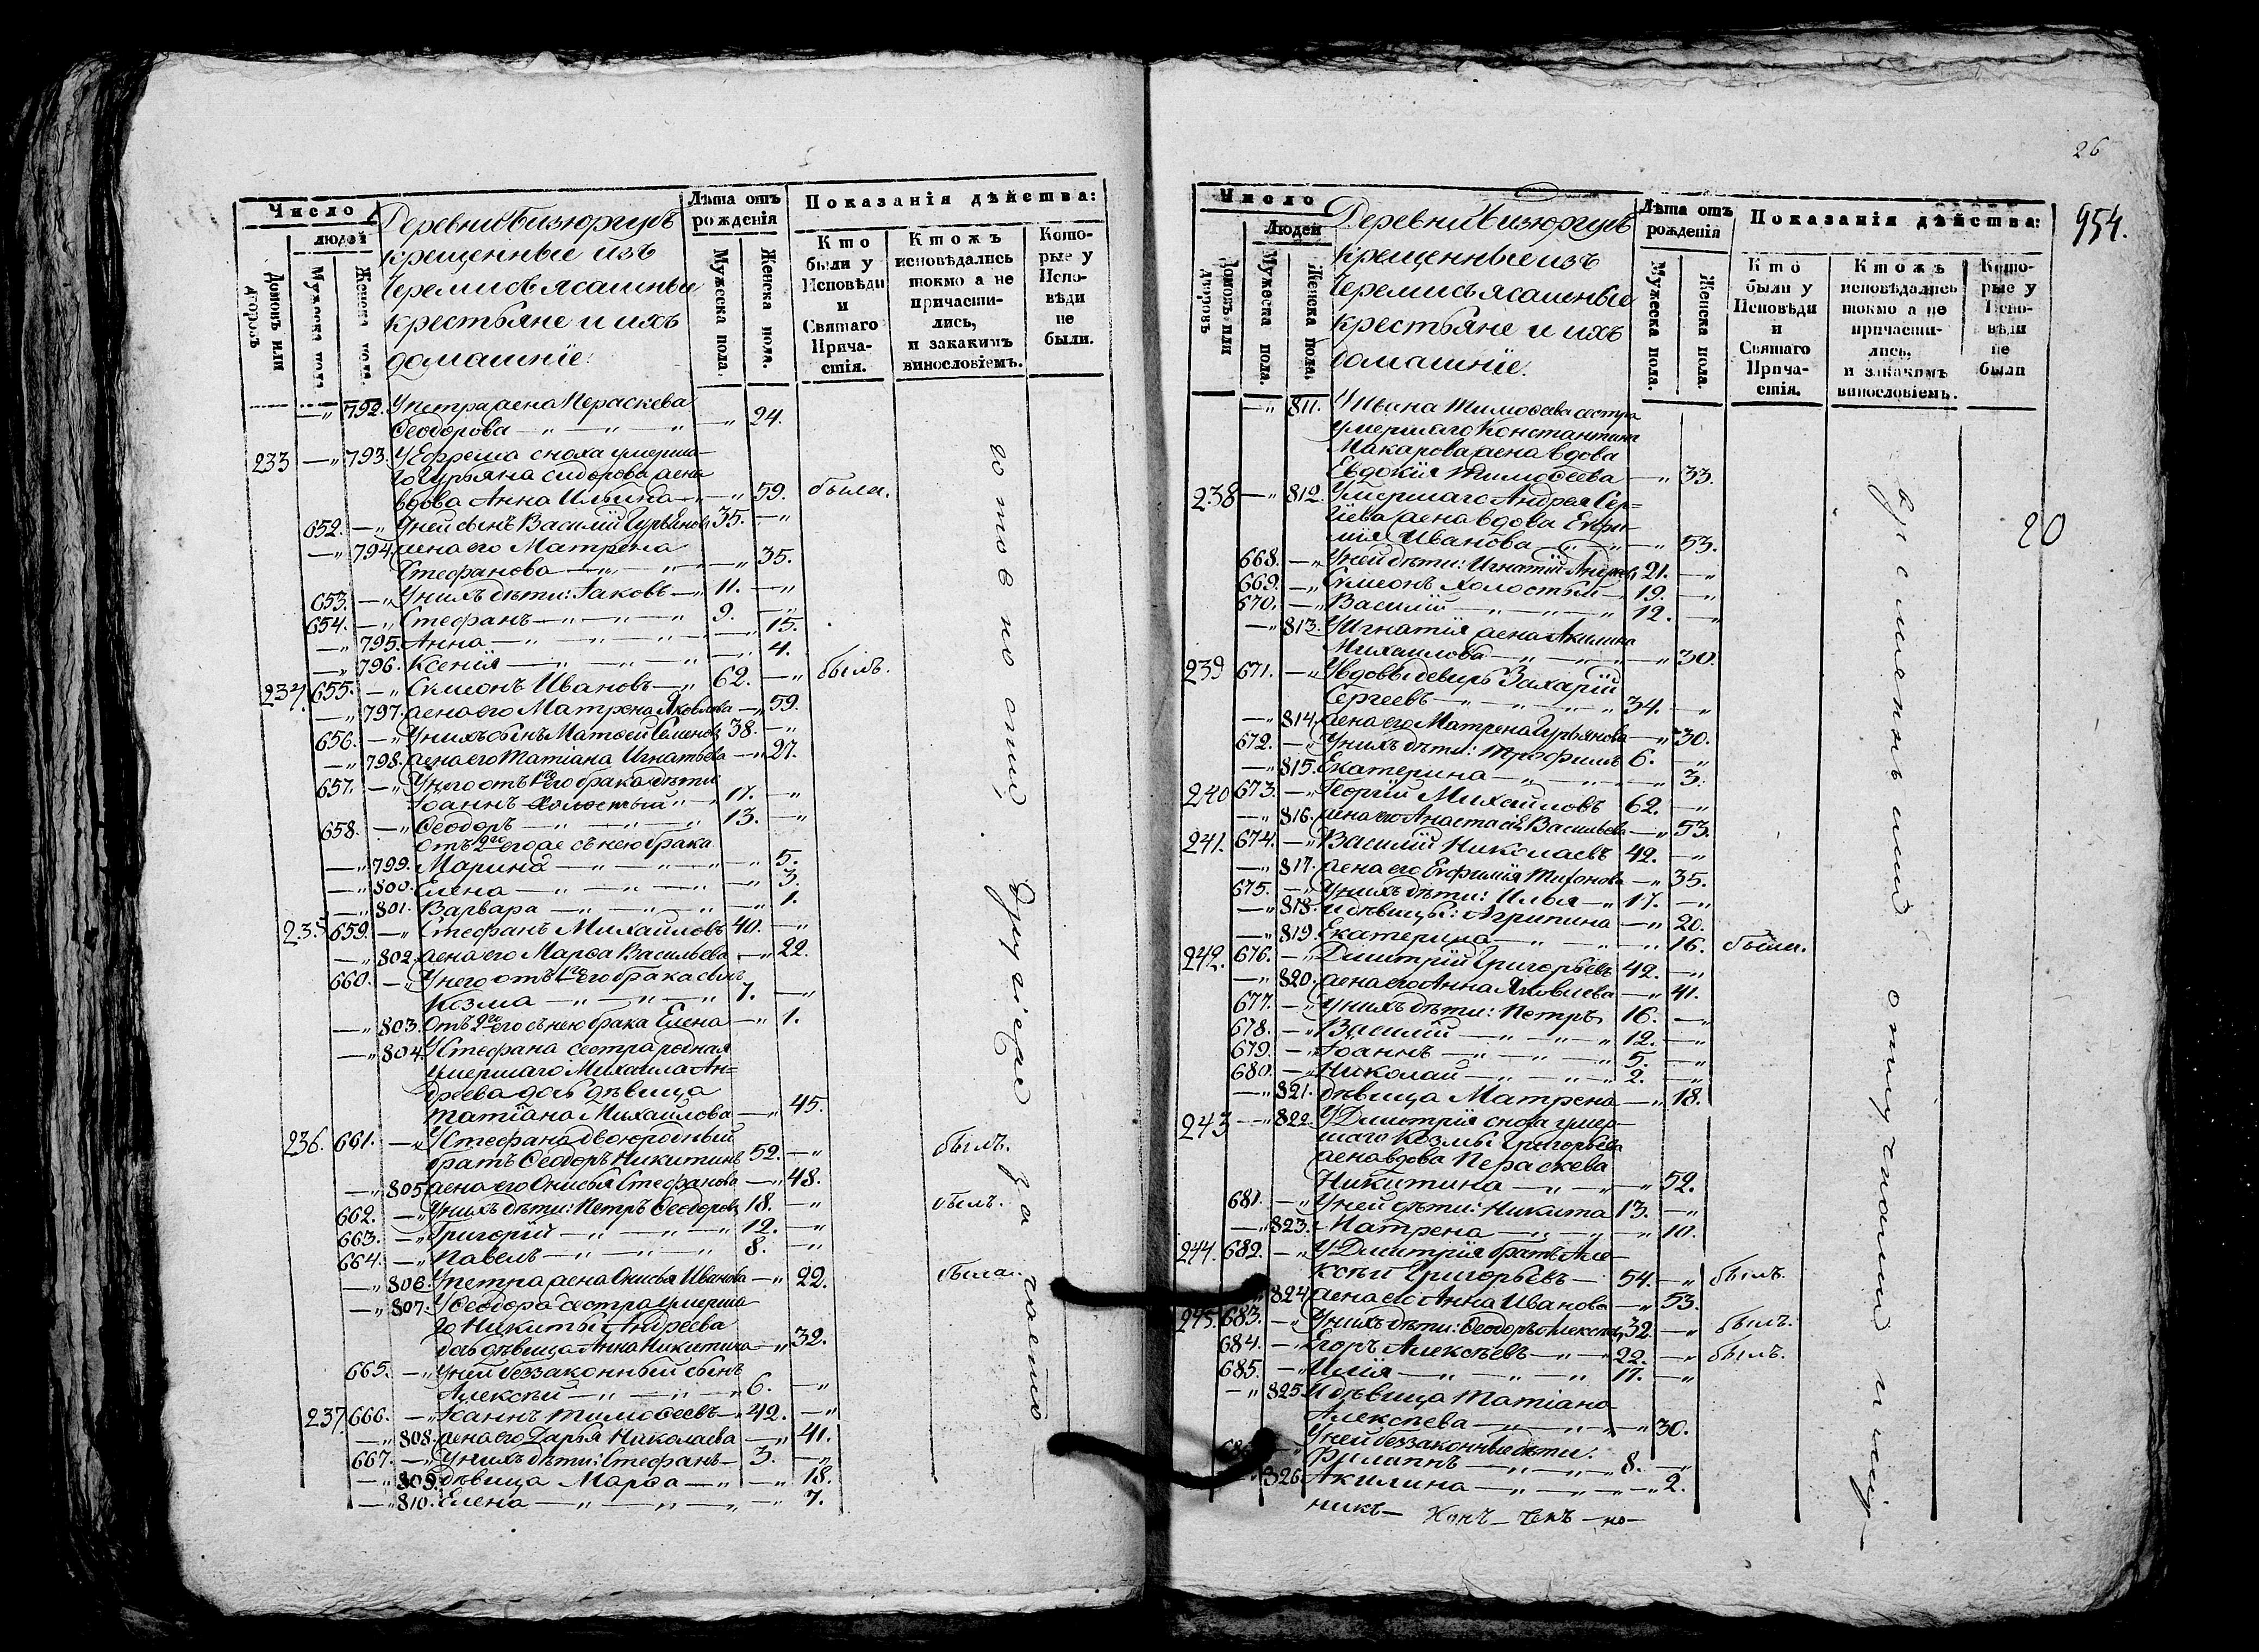 Число
людей
Домовъ или дворовъ
Мужеска пола
Женска пола.
Деревни
крещенные изъ
Черемисъ ясашные
крестьяне и ихъ
домашніе.
Лѣта отъ рожденія
Мужеска пола.
Женска пола.
Показанія дѣйства:
Кто были у Исповѣди и Святаго Прича- стія.
Ктожъ исповѣдались токмо а не причасти- лись, и закакимъ винословіемъ.
Кото- рые у Испо- вѣди не были.
— 792. У Петра жена Пераскева
Ѳеодорова — 24.
233 — 793. У Ефрема сноха умерша-
го Гурьяна Сидорова жена
вдова Анна Ильина — 59. была.
652. — У ней сынъ Василій Гурьяновъ 35. —
— 794. жена его Матрена
Стефанова — 35.
653. — У нихъ дѣти: Іаковъ — 11. —
654. — Стефанъ — 9. —
— 795. Анна — 15.
— 796. Ксенія — 4.
234. 655. — Симеонъ Ивановъ — 62. — былъ.
— 797. жена его Матрона Яковлева — 59.
656. — У нихъ сынъ Матѳей Семеновъ 38. —
— 798. жена его Татіана Игнатьева — 27.
657. — У него отъ 1го его брака дѣти
Іоаннъ холостый — 17. —
658. — Ѳеодоръ — 13. —
отъ 2го его же съ нею брака
— 799. Марина — 5.
— 800. Елена — 3.
— 801. Варвара — 1.
235 659. — Стефанъ Михайловъ 40. —
— 802. жена его Марѳа Васильева — 22.
660. — У него отъ 1го его брака сынъ
Козма — 7. —
— 803. Отъ 2го его съ нею брака Елена — 1.
— 804. У Стефана сестра родная
умершаго Михаила Ан=
дреева дочь дѣвица
Татіана Михайлова — 45.
236. 661. — У Стефана двоюродный
братъ Ѳеодоръ Никитинъ 52. — былъ.
— 805. жена его Онисья Стефанова — 48.
662. — У нихъ дѣти: Петръ Ѳеодоровъ 18. — былъ.
663. — Григорій — 12. —
664. — Павелъ — 8. —
— 806. У Петра жена Онисья Иванова — 22. была.
— 807. У Ѳеодора сестра умерша
го Никиты Андреева
дочь дѣвица Анна Никитина — 32.
665. — У ней беззаконный сынъ
Алексѣй — 6. —
237 666. — Іоаннъ Тимоѳеевъ — 42. —
— 808. жена его Дарья Николаева — 41.
667. — У нихъ дѣти: Стефанъ — 3. —
— 809. дѣвица Марѳа — 18.
— 810. Елена — 7.
за
26
954.
20
Число
Людей
Домовъ или дворовъ
Мужеска пола.
Женска пола.
Деревни
крещенные изъ
Черемисъ ясашные
крестьяне и ихъ
домашніе.
Лѣта отъ рожденія
Мужеска пола.
Женска пола.
Показанія дѣйства:
Кто были у Исповѣди и Святаго Прича- стія.
Ктожъ исповѣдались токмо а не причасти- лись, и закакимъ винословіемъ.
Кото- рые у Испо- вѣди не были
— 811. Тимоѳеева сестра
умершаго Константина
Макарова жена вдова
Евдокія Тимоѳеева — 33.
238 — 812. Умершаго Андрея Сер=
гѣева жена вдова Евфи-
мія Иванова — 53.
668. — У ней дѣти: Игнатій Андреевъ 21. —
669. — Симеонъ холостый — 19. —
670. — Василій — 12. —
— 813. У Игнатія жена Акилина
Михайлова — 30.
239 671. — У вдовы деверь Захарій
Сергеевъ — 34. —
— 814. жена его Матрена Гурьянова — 30.
672. — У нихъ дѣти: Трофимъ 6. —
— 815. Екатерина — 3.
240 673. — Георгій Михайловъ 62. —
— 816. жена его Анастасія Васильева — 53.
241. 674. — Василій Николаевъ 42. —
— 817. жена его Евфимія Тихонова — 35.
675. — У нихъ дѣти: Илья — 17. —
— 818. и дѣвицы: Агрипина — 20.
— 819. Екатерина — 16. была.
242. 676. — Димитрій Григорьевъ 42. —
— 820. жена его Анна Яковлева — 41.
677. — У нихъ дѣти: Петръ 16. —
678. — Василій — 12. —
679. — Іоаннъ — 5. —
680. — Николай — 2. —
— 821. дѣвица Матрена — 18.
243 — 822. У Димитрія сноха умер-
шаго Козмы Григорьева
жена вдова Пераскева
Никитина — 52.
681. — У ней дѣти: Никита 13. —
— 823. Матрена — 10.
244. 682. — У Димитрія братъ Але-
ксѣй Григорьевъ — 54. — былъ.
824 жена его Анна Иванова — 53.
245. 683. — У нихъ дѣти: Ѳеодоръ Алексѣевъ 32. — былъ.
684. — Егоръ Алексѣевъ — 22. — былъ.
685. — Илія — 17. —
— 825. И дѣвица Татіана
Алексѣева — 30.
У ней беззаконные дѣти:
686 — Филиппъ — 8. —
826. Акилина — 2.
никъ —